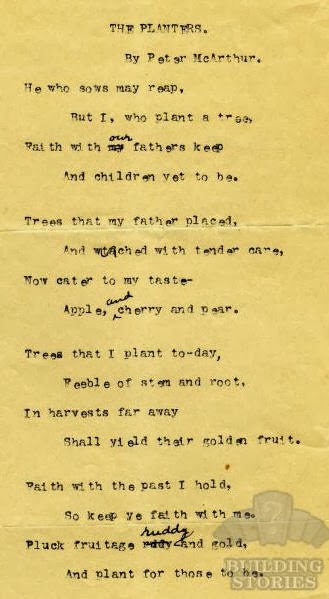 THE PLANTERS.
By Peter McArthur.
He who sows may reap,
But I, who plant a tree,
Faith with our fathers keep
And children yet to be.
Trees that my father placed,
And watched with tender care,
Now cater to my taste-
Apple, and cherry and pear.
Trees that I plant to-day,
Feeble of stem and root,
In harvests far away
Shall yield their golden fruit.
Faith with the past I hold,
So keep ye faith with me.
Pluck fruitage ruddy and gold,
And plant for those to be.
BUILDING
STORIES